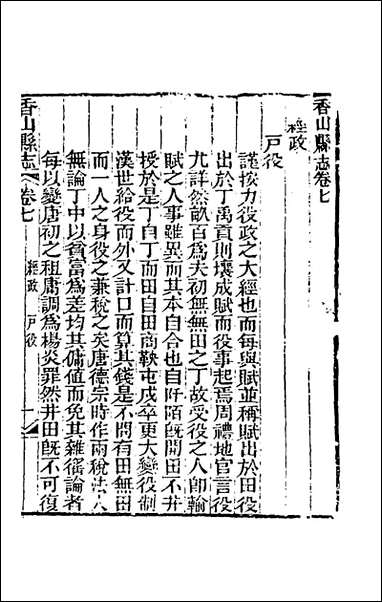 香山縣志卷七
經政
戸役
謹按力役政之大經也而每與賦並稱賦出於田役
出於丁禹貢則壤成賦而役事起焉周禮地官言役
尤詳然畝百爲夫初無無田之丁故受役之人卽輸
賦之人事雖異而其本自合也自阡陌旣開田不井
授於是丁自丁而田自田商鞅屯戍卒更大變役制
漢世給役而外又計口而算其錢是不問有田無田
而一人之身役之兼稅之矣唐德宗時作兩稅法人
無論丁中以貧富爲差均其傭值而免其雜徭論者
每以變唐初之租庸調爲楊炎罪然井田旣不可復
香山縣志
卷七
經政 戸役
一